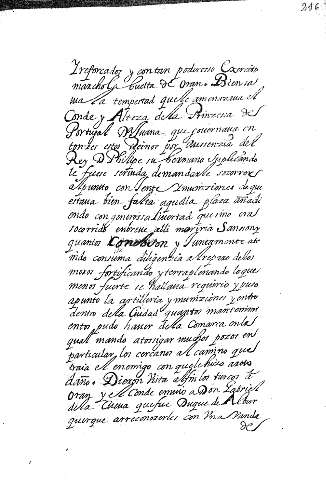 216
Y reforçados y con tan poderoso Exercito
marchó la buelta de Oran. Bien sa
uia la tempestad que le amenazaua el
Conde, y Alteza de la Princesa de
Portugal D. Juana que gouernaua en
tonzes estos Reinos por ausenzia del
Rey D. Phelipe su hermano suplicando
le fuese seruida demandarle socorro
con Jente Y muniziones de que
estaua bien falta aquella plaza añadi
endo con generossa libertad que sino era
socorrido en breue alli moriria Sanson y
quantos con el son y
nido con suma dilijencia al reparo de los
muros fortificando y terraplenando lo que
menos fuerte se hallaua requirio y puso
apunto la artilleria y muniziones y entro
dentro de la Ciudad quantos mantenimi
entos pudo hauer de la Comarca en la
qual mando atosigar muchos pozos en
particular los cercanos al camino que
traia el enemigo con que le hizo harto
daño. Dieron Vista al fin los turcos a
Oran y el Conde enuio a Don Gabriel
de la Cueua que fue Duque de Albur
querque a rreconozerles con Vna Vanda
de